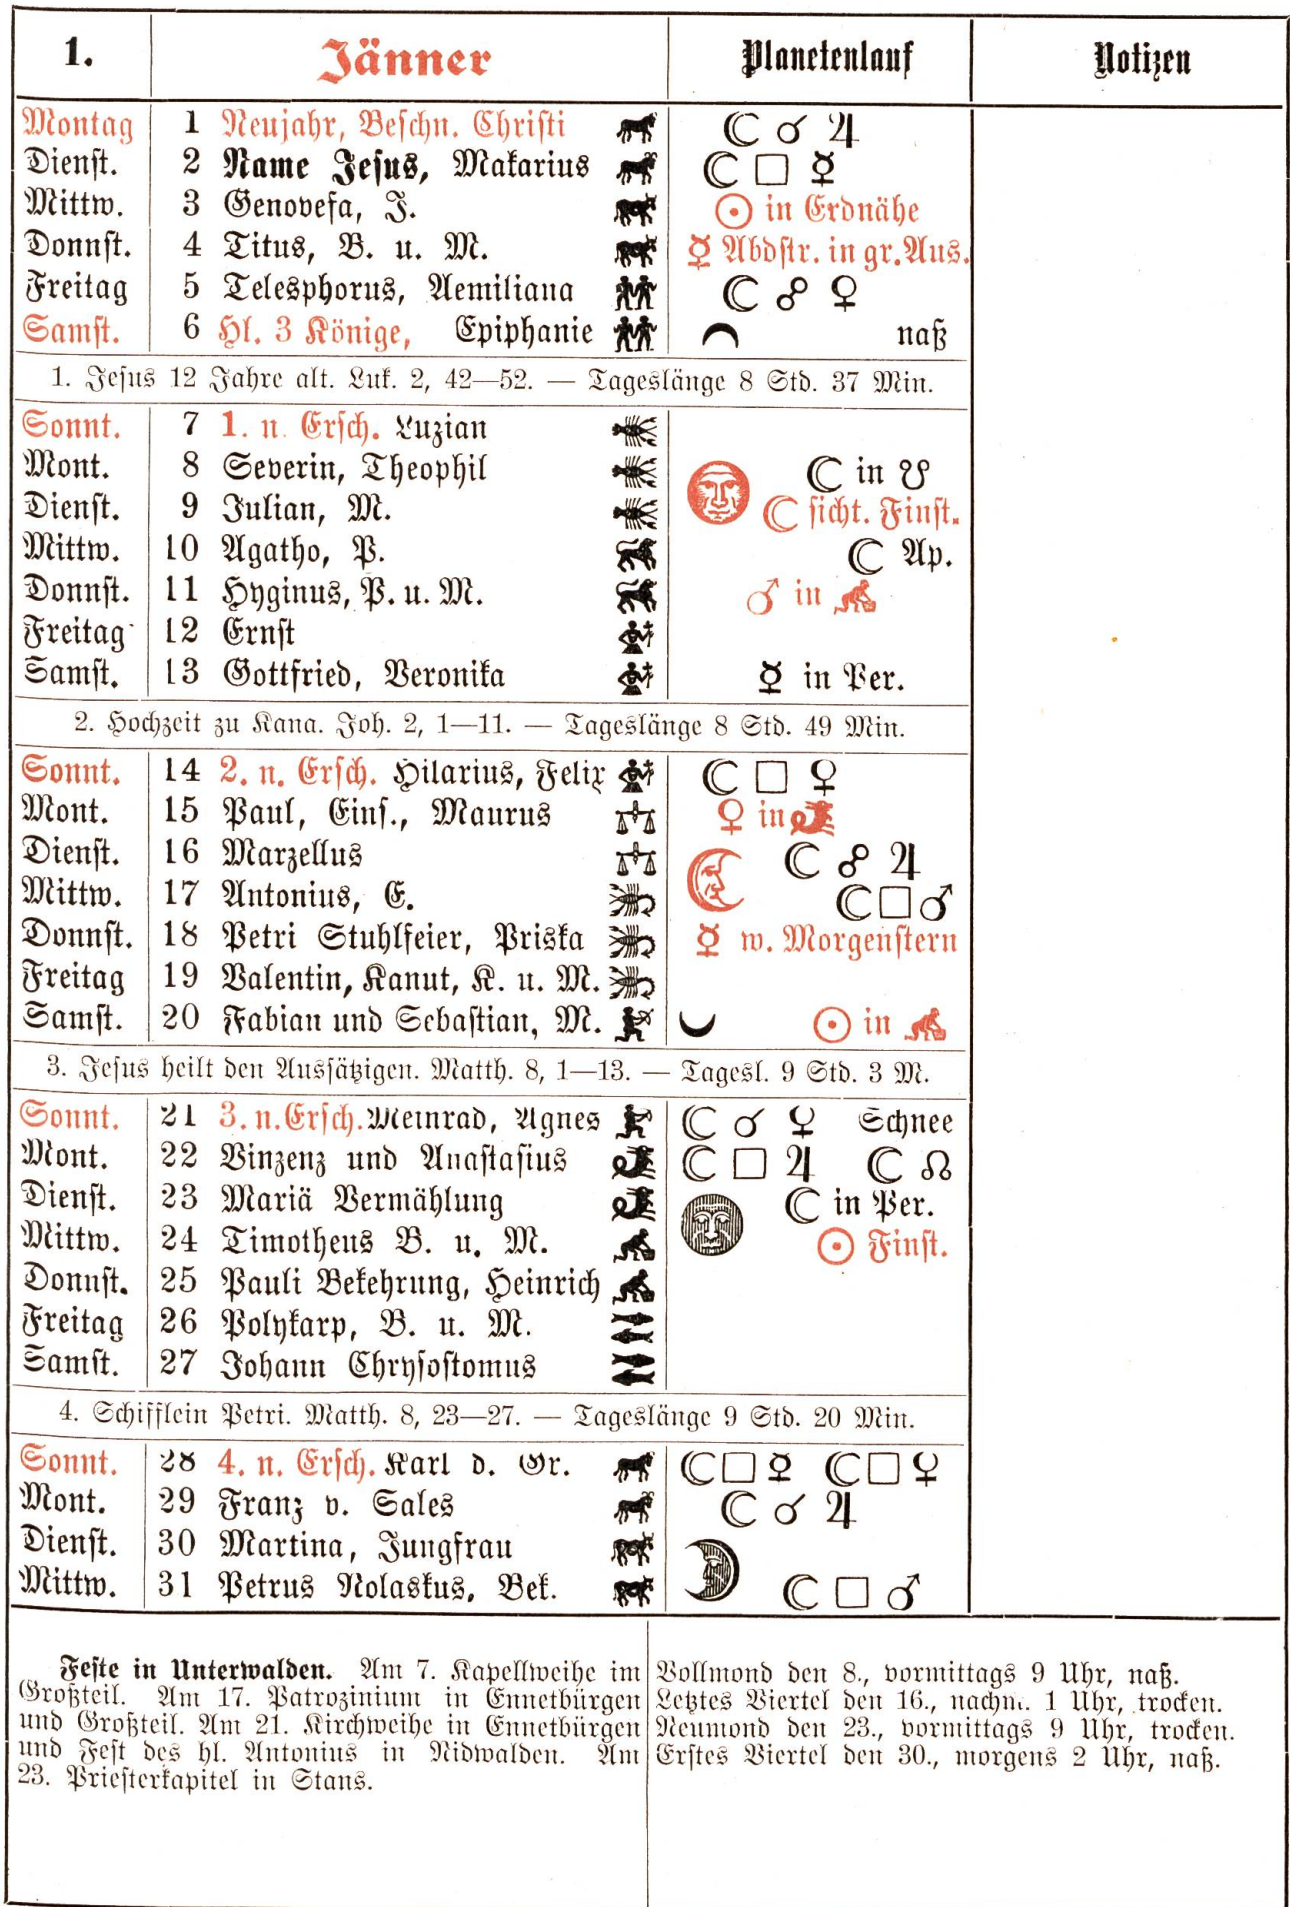 1. Jänner Planetenlauf Notizen
Montag 1 Neujahr, Beschn. Christi ☾ ☌ ♃
Dienst. 2 Name Jesus, Makarius ☾ □ ☿
Mittw. 3 Genovefa, J. ☉ in Erdnähe
Donnst. 4 Titus, B. u. M. ☿ Abdstr. in gr. Aus.
Freitag 5 Telesphorus, Aemiliana ☾ ☍ ♀
Samst. 6 Hl. 3 Könige, Epiphanie naß
1. Jesus 12 Jahre alt. Luk. 2, 42—52. — Tageslänge 8 Std. 37 Min.
Sonnt. 7 1. n. Ersch. Luzian
Mont. 8 Severin, Theophil ☾ in ☋
Dienst. 9 Julian, M. ☾ sicht. Finst.
Mittw. 10 Agatho, P. ☾ Ap.
Donnst. 11 Hyginus, P. u. M. ♂ in
Freitag 12 Ernst
Samst. 13 Gottfried, Veronika ☿ in Per.
2. Hochzeit zu Kana. Joh. 2, 1—11. — Tageslänge 8 Std. 49 Min.
Sonnt. 14 2. n. Ersch. Hilarius, Felix ☾ □ ♀
Mont. 15 Paul, Eins., Maurus ♀ in
Dienst. 16 Marzellus ☾ ☍ ♃
Mittw. 17 Antonius, E. ☾ □ ♂
Donnst. 18 Petri Stuhlfeier, Priska ☿ w. Morgenstern
Freitag 19 Valentin, Kanut, K. u. M.
Samst. 20 Fabian und Sebastian, M. ☉ in
3. Jesus heilt den Aussätzigen. Matth. 8, 1—13. — Tagesl. 9 Std. 3 M.
Sonnt. 21 3. n. Ersch. Meinrad, Agnes ☾ ☌ ☿ Schnee
Mont. 22 Vinzenz und Anastasius ☾ □ ♃ ☾ ☊
Dienst. 23 Mariä Vermählung ☾ in Per.
Mittw. 24 Timotheus B. u. M. ☉ Finst.
Donnst. 25 Pauli Bekehrung, Heinrich
Freitag 26 Polykarp, B. u. M.
Samst. 27 Johann Chrysostomus
4. Schifflein Petri. Matth. 8, 23—27. — Tageslänge 9 Std. 20 Min.
Sonnt. 28 4. n. Ersch. Karl d. Gr. ☾ □ ☿ ☾ □ ♀
Mont. 29 Franz v. Sales ☾ ☌ ♃
Dienst. 30 Martina, Jungfrau
Mittw. 31 Petrus Nolaskus, Bek. ☾ □ ♂
Feste in Unterwalden. Am 7. Kapellweihe im
Großteil. Am 17. Patrozinium in Ennetbürgen
und Großteil. Am 21. Kirchweihe in Ennetbürgen
und Fest des hl. Antonius in Nidwalden. Am
23. Priesterkapitel in Stans.
Vollmond den 8., vormittags 9 Uhr, naß.
Letztes Viertel den 16., nachm. 1 Uhr, trocken.
Neumond den 23., vormittags 9 Uhr, trocken.
Erstes Viertel den 30., morgens 2 Uhr, naß.